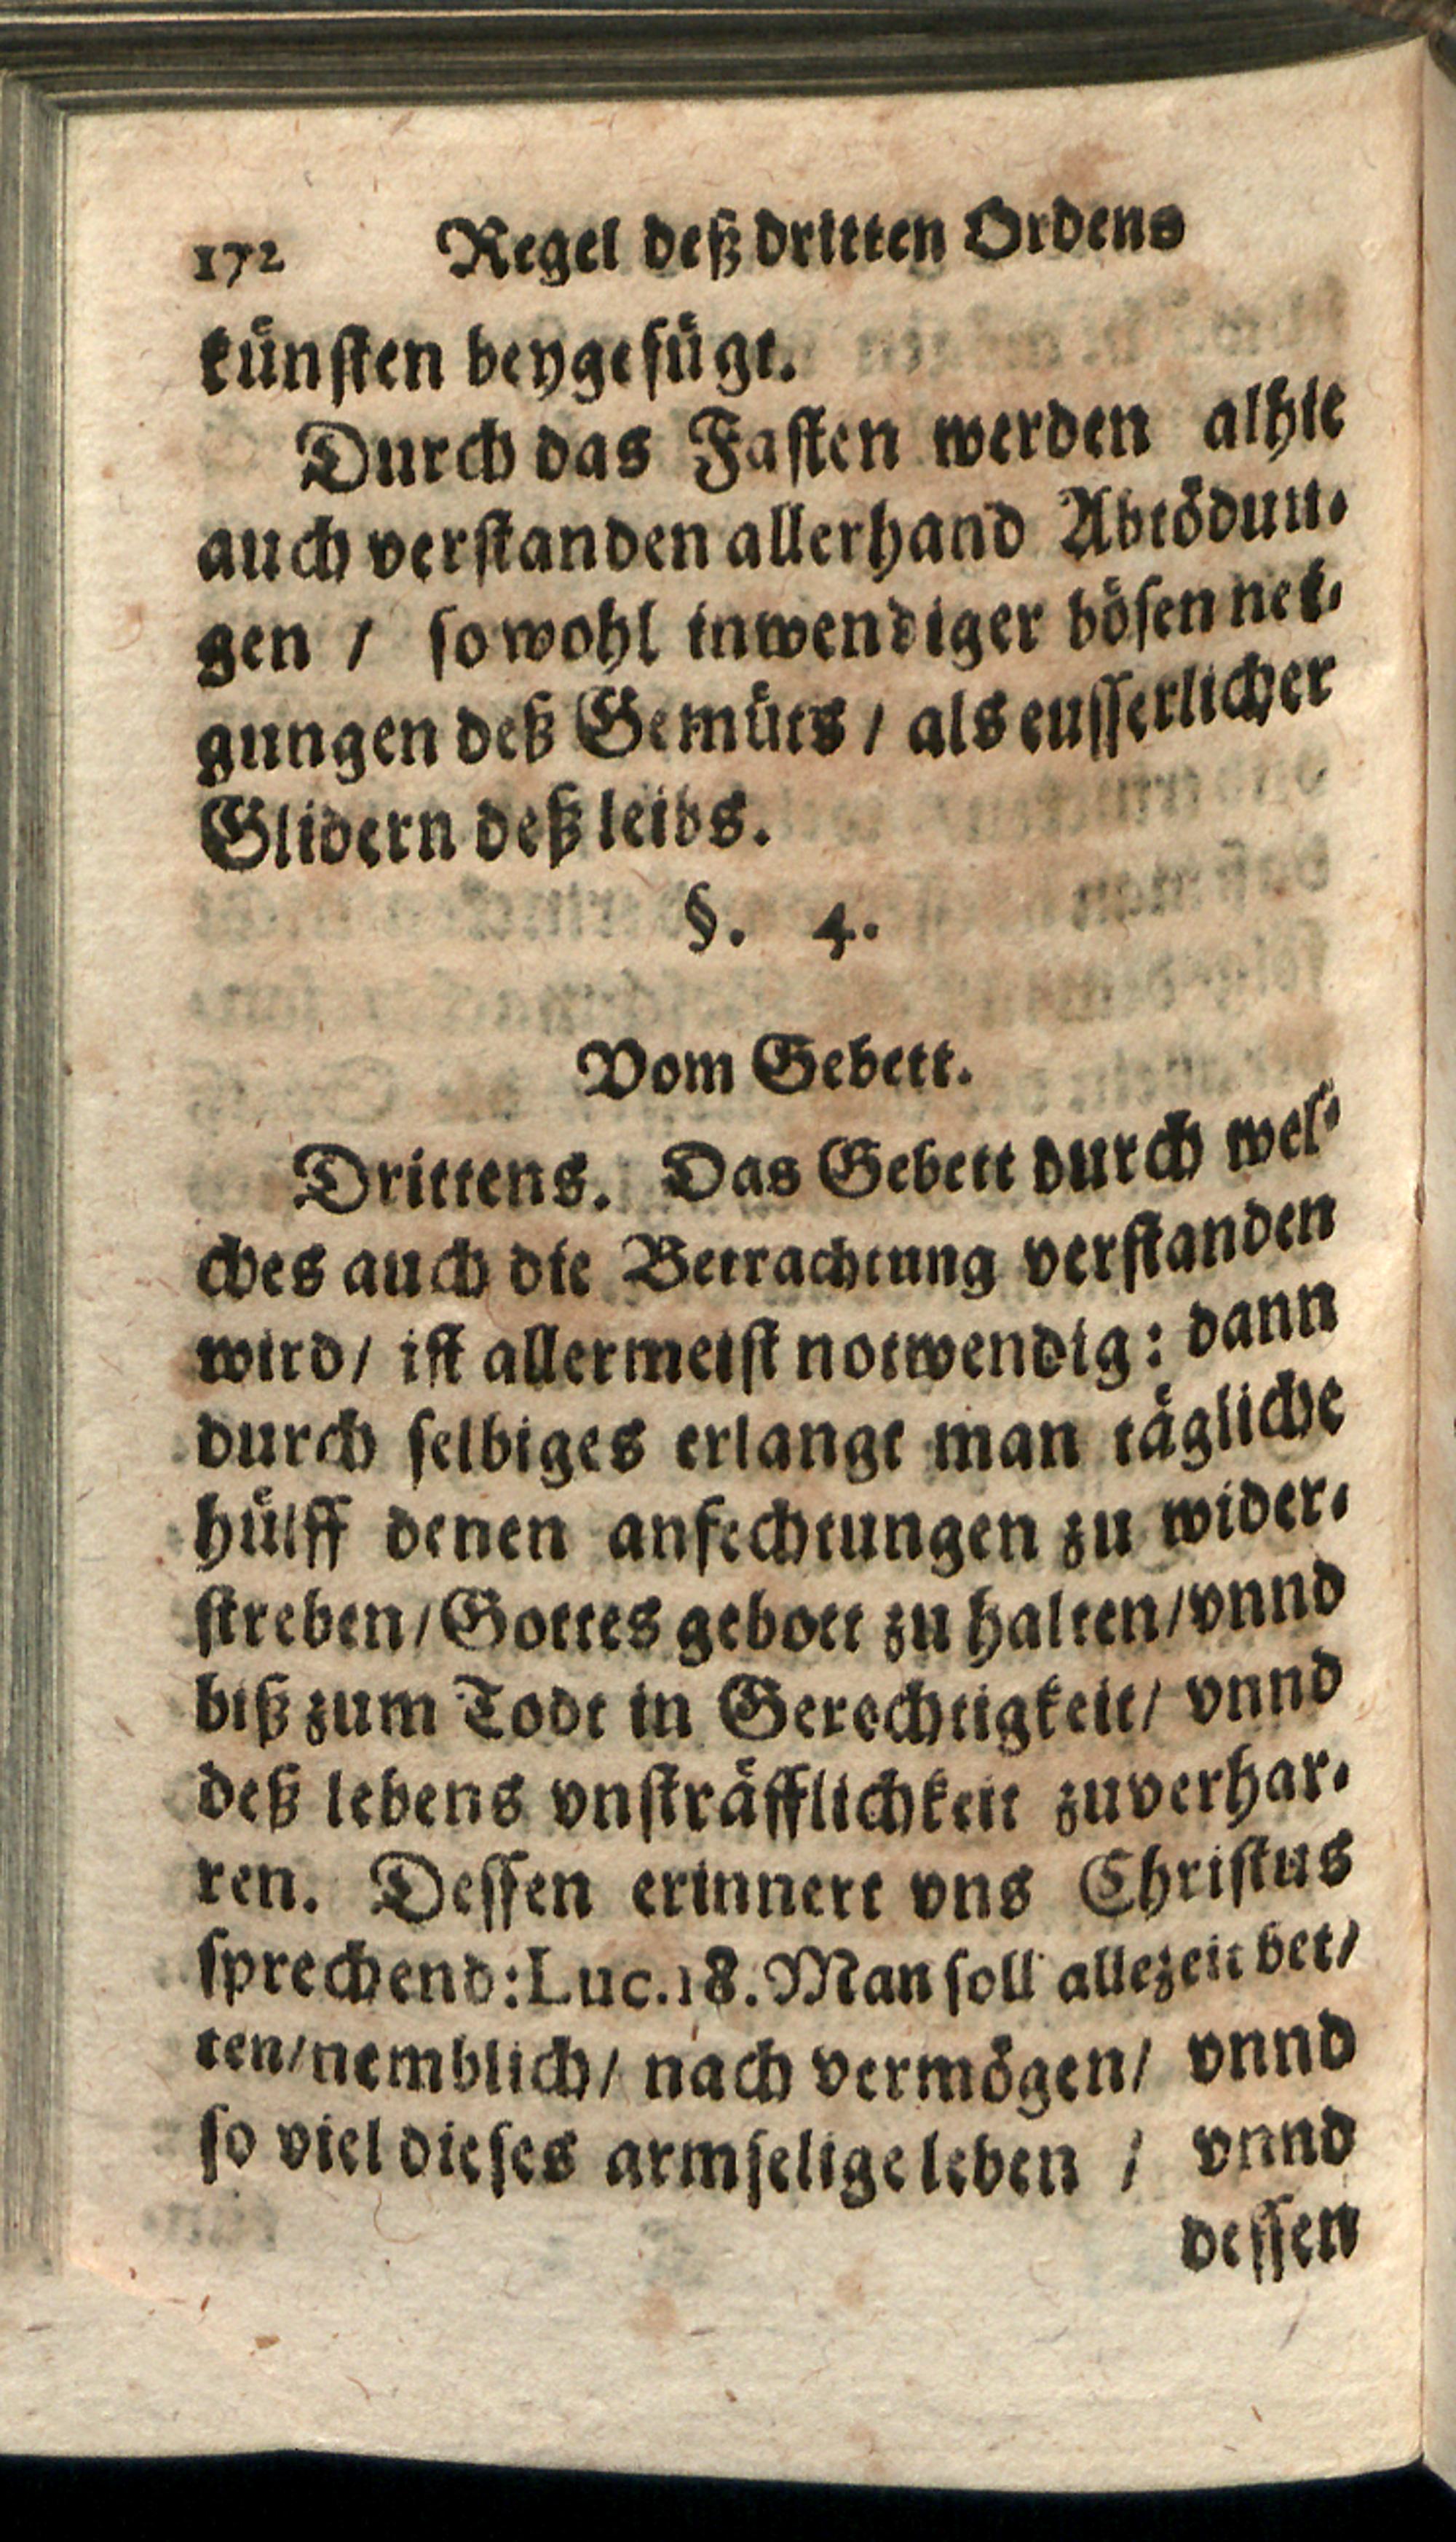 172 Regel deß dritten Ordens
künſten beygefügt.
Durch das Faſten werden alhie
auch verſtanden allerhand Abtödun-
gen / ſo wohl inwendiger böſen nei-
gungen deß Gemüts / als euſſerlicher
Glidern deß leibs.
§. 4.
Vom Gebett.
Drittens. Das Gebett durch wel-
ches auch die Betrachtung verſtanden
wird / iſt allermeiſt notwendig: dann
durch ſelbiges erlangt man tägliche
hülff denen anfechtungen zu wider-
ſtreben / Gottes gebott zu halten / vnnd
biß zum Todt in Gerechtigkeit / vnnd
deß lebens vnſträfflichkeit zuverhar-
ren. Deſſen erinnert vns Chriſtus
ſprechend: Luc. 18. Man ſoll allezeit bet/
ten / nemblich / nach vermögen / vnnd
ſo viel dieſes armſelige leben / vnnd
deſſen